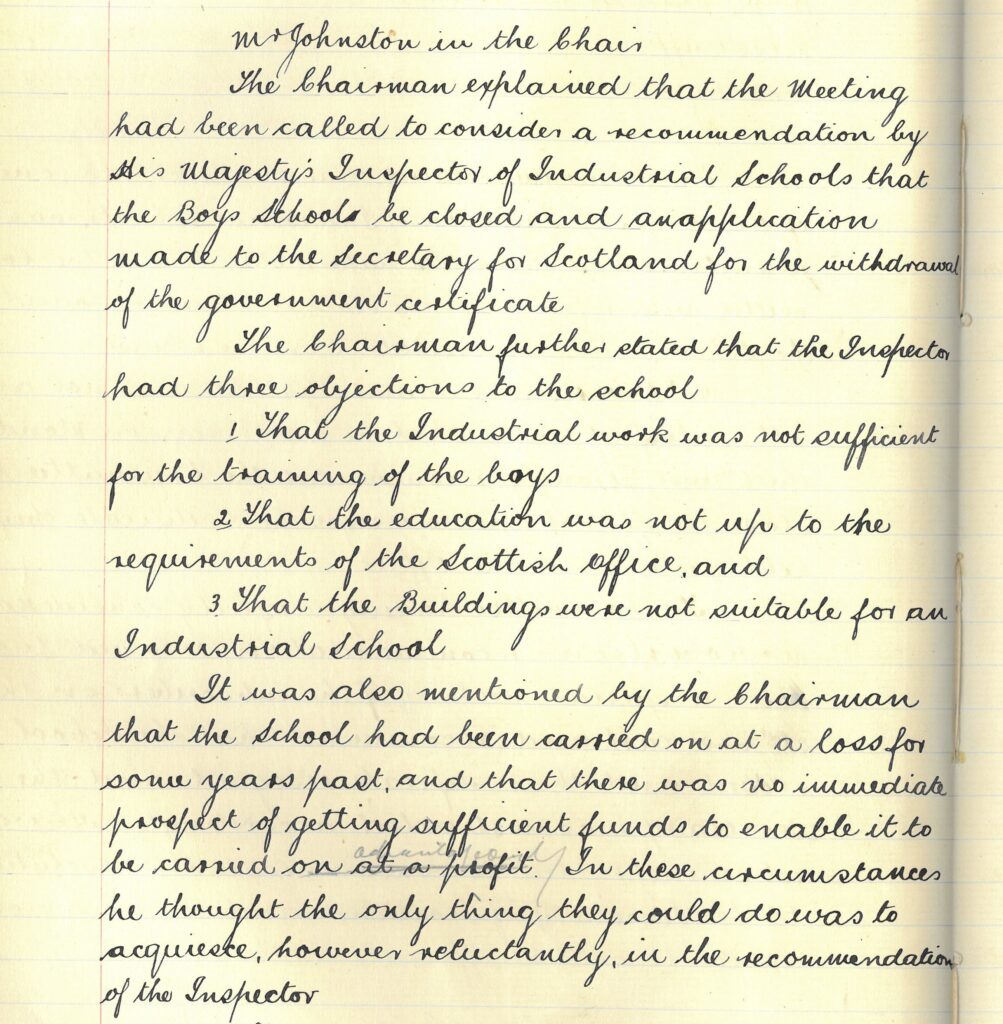 Mr Johnston in the Chair
The Chairman explained that the Meeting
had been called to consider a recommendation by
His Majesty's Inspector of Industrial Schools that
the Boys Schools be closed and an application
made to the Secretary for Scotland for the withdrawal
of the government certificate
The Chairman further stated that the Inspector
had three objections to the school
1 That the Industrial work was not sufficient
for the training of the boys
2 That the education was not up to the
requirements of the Scottish Office, and
3 That the Buildings were not suitable for an
Industrial School
It was also mentioned by the Chairman
that the School had been carried on at a loss for
some years past, and that there was no immediate
prospect of getting sufficient funds to enable it to
advantageously
be carried on at a profit. In these circumstances
he thought the only thing they could do was to
acquiesce, however reluctantly, in the recommendation
of the Inspector